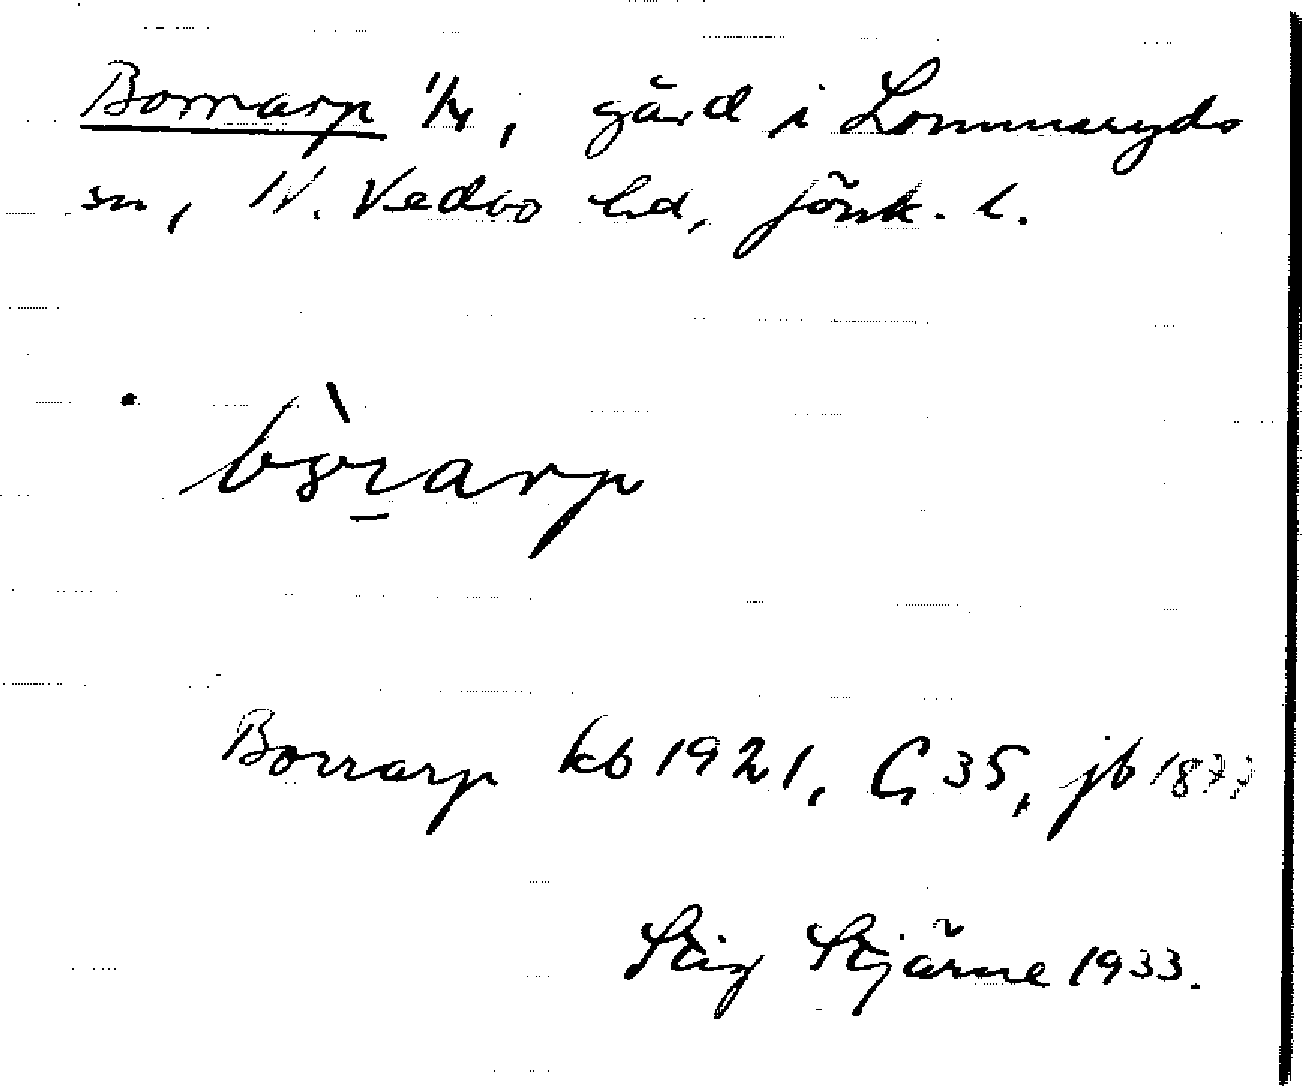 Borrarp 1/4, gård i Lommaryds
sn, N. Vedbo hd, Jönk. l.
bòrarp
Borrarp kb 1921, G 35, jb 1877
Stig Stjärne 1933.